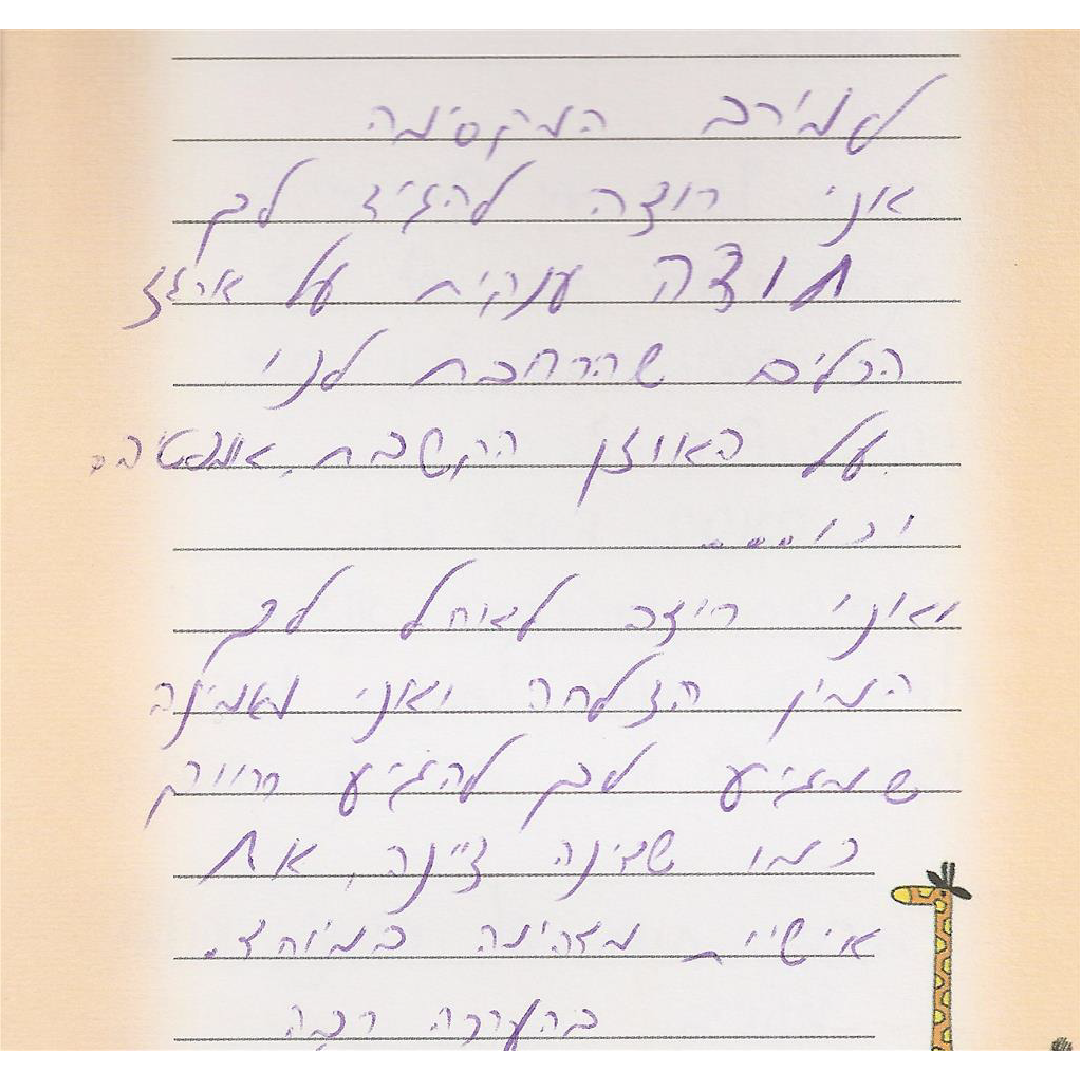 למירב המקסימה
אני רוצה להגיד לך
תודה ענקית על ארגז
הכלים שהרחבת לנו
על האוזן הקשבת, אמפטיה
וכו....
ואני רוצה לאחל לך
המון הצלחה ואני מאמינה
שמגיע לך להגיע רחוק
כמו שדינה ציינה, את
אישיות מדהימה במיוחד.
בהערכה רבה